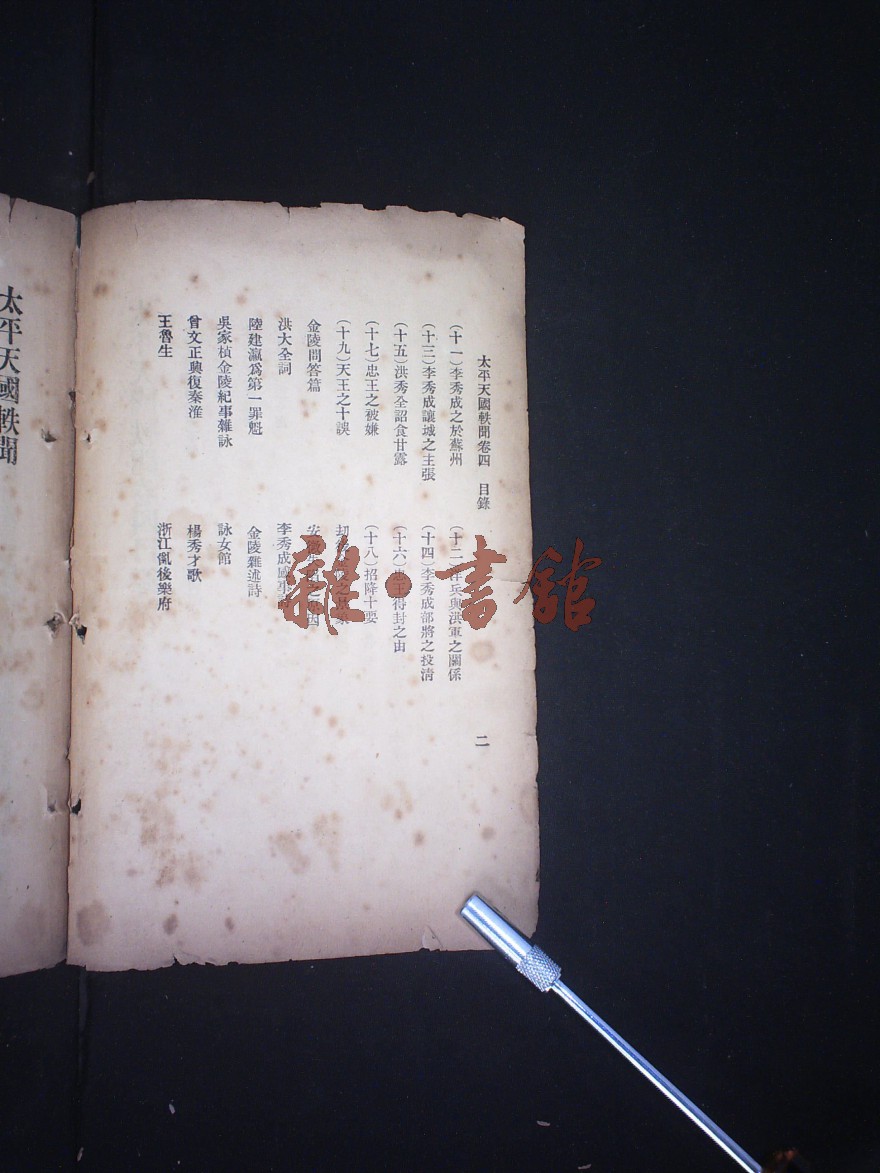 太平天國軼聞卷四　目錄　二
(十一)李秀成之於蘇州　(十二)洋兵與洪軍之關係
(十三)李秀成讓城之主張　(十四)李秀成部將之投清
(十五)洪秀全詔食甘露　(十六)忠王得封之由
(十七)忠王之被嫌　(十八)招降十要
(十九)天王之十誤
金陵問答篇
洪大全詞　李秀成感事
陸建瀛爲第一罪魁　金陵雜述詩
吳家楨金陵紀事雜詠　詠女館
曾文正興復秦淮　楊秀才歌
王魯生　浙江亂後樂府
太平天國軼聞
雜·書館